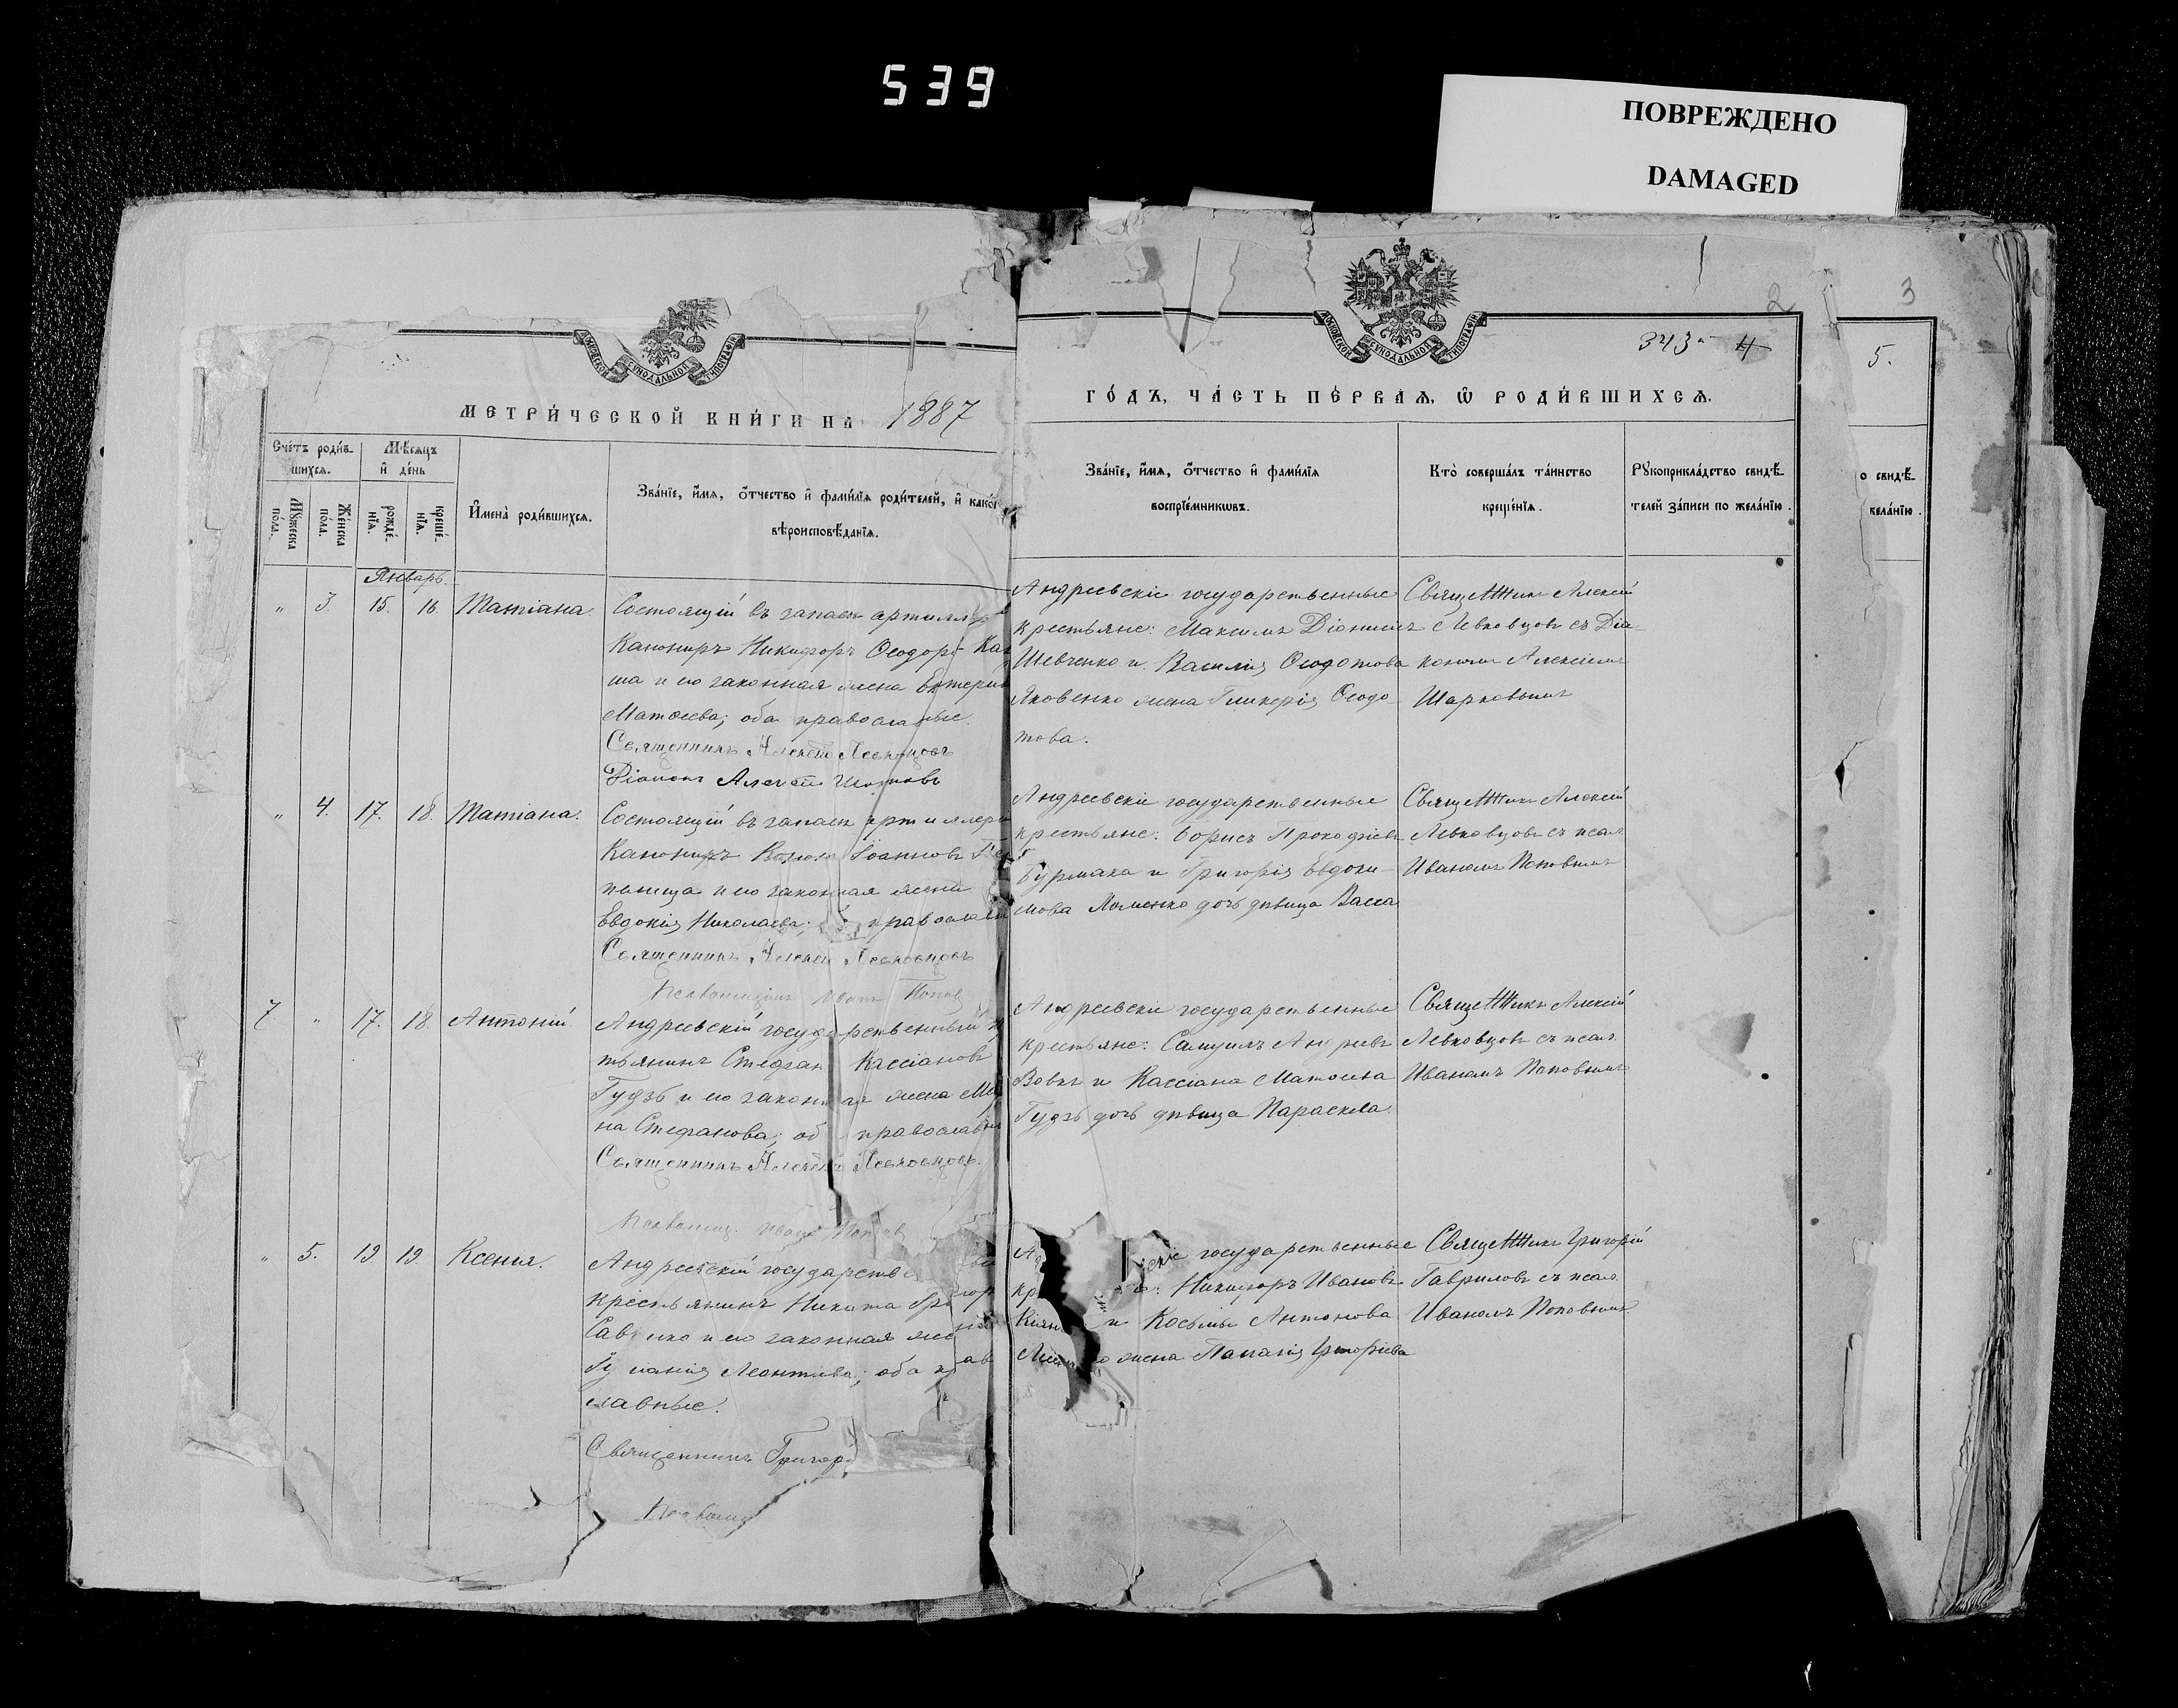 539
ПОВРЕЖДЕНО
DAMAGED
2
3
343 4
5.
МОСКОВСКОЙ СУНОДАЛЬНОЙ ТИПОГРАФІИ
МОСКОВСКОЙ СУНОДАЛЬНОЙ ТИПОГРАФІИ
МЕТРИ́ЧЕСКОЙ КНИ́ГИ НА 1887
ГО́ДЪ, ЧА́СТЬ ПЕ́РВАЯ, Ѿ РОДИ́ВШИХСЯ.
Сче́тъ роди́в-
шихся.
Мѣ́сяцъ
и҆ де́нь
Мꙋ́жеска по́ла.
Же́нска по́ла.
рожде́-
нїя.
креще́-
нїя.
И҆мена̀ роди́вшихся.
Зва́нїе, и҆́мя, ѻ҆́тчество и҆ фами́лїя роди́телей, и҆ како́г
вѣроисповѣ́данїя.
Зва́нїе, и҆́мя, ѻ҆́тчество и҆ фами́лїя
воспрїе́мникωвъ.
Кто̀ соверша́лъ та́инство
креще́нїя.
Рꙋкоприкла́дство свидѣ́-
телей за́писи по жела́нїю.
о свидѣ́-
жела́нїю.
Январь.
" 3. 15. 16. Татіана.
Состоящій въ запасѣ артиллер
Канониръ Никифоръ Ѳеодор
ша и его законная жена Екатерин
Матѳеева; оба православные.
Священникъ Алексѣй Левковцовъ
Діаконъ Алексѣй Шарковъ
Андреевскіе государственные
крестьяне: Максимъ Діонисіевъ
Шевченко и Василія Ѳеодотова
Яковенко жена Гликерія Ѳеодо-
това.
Священникъ Алексій
Левковцовъ съ Діа-
кономъ Алексіемъ
Шарковымъ
" 4. 17. 18. Татіана.
Состоящій въ запасѣ артиллері
Канониръ Іоанновъ
пелица и его законная жена
Евдокія Николаева; православн
Священникъ Алексѣй Левковцовъ
Псаломщикъ Иванъ Попов
Андреевскіе государственные
крестьяне: Борисъ Прокофіевъ
Бурмака и Григорія Евдоки-
мова Яименко дочь дѣвица Васса
Священникъ Алексій
Левковцовъ съ псал.
Иваномъ Поповымъ
7 " 17. 18. Антоній.
Андреевскій государственный к
тьянинъ Стефан Кассіановъ
Гудзь и его законная жена
на Стефанова; об православн
Священникъ Алексѣй Левковцовъ.
Псаломщ. Иванъ Попов
Андреевскіе государственные
крестьяне: Самуилъ Андреевъ
Вовкъ и Кассіана Матѳеева
Гудзь дочь дѣвица Параскева.
Священникъ Алексій
Левковцовъ съ псал.
Иваномъ Поповымъ
" 5. 19 19. Ксенія.
Андреевскій государстве
крестьянинъ Никита Григор
Сав енко и его законная же
Іуліанія Леонтьева; оба прав
славные.
Священникъ Григор
Псаломщ
государственные
Никифоръ Ивановъ
и Косьмы Антонова
жена Пелагія Григоріева
Священникъ Григорій
Гавриловъ съ псал.
Иваномъ Поповымъ